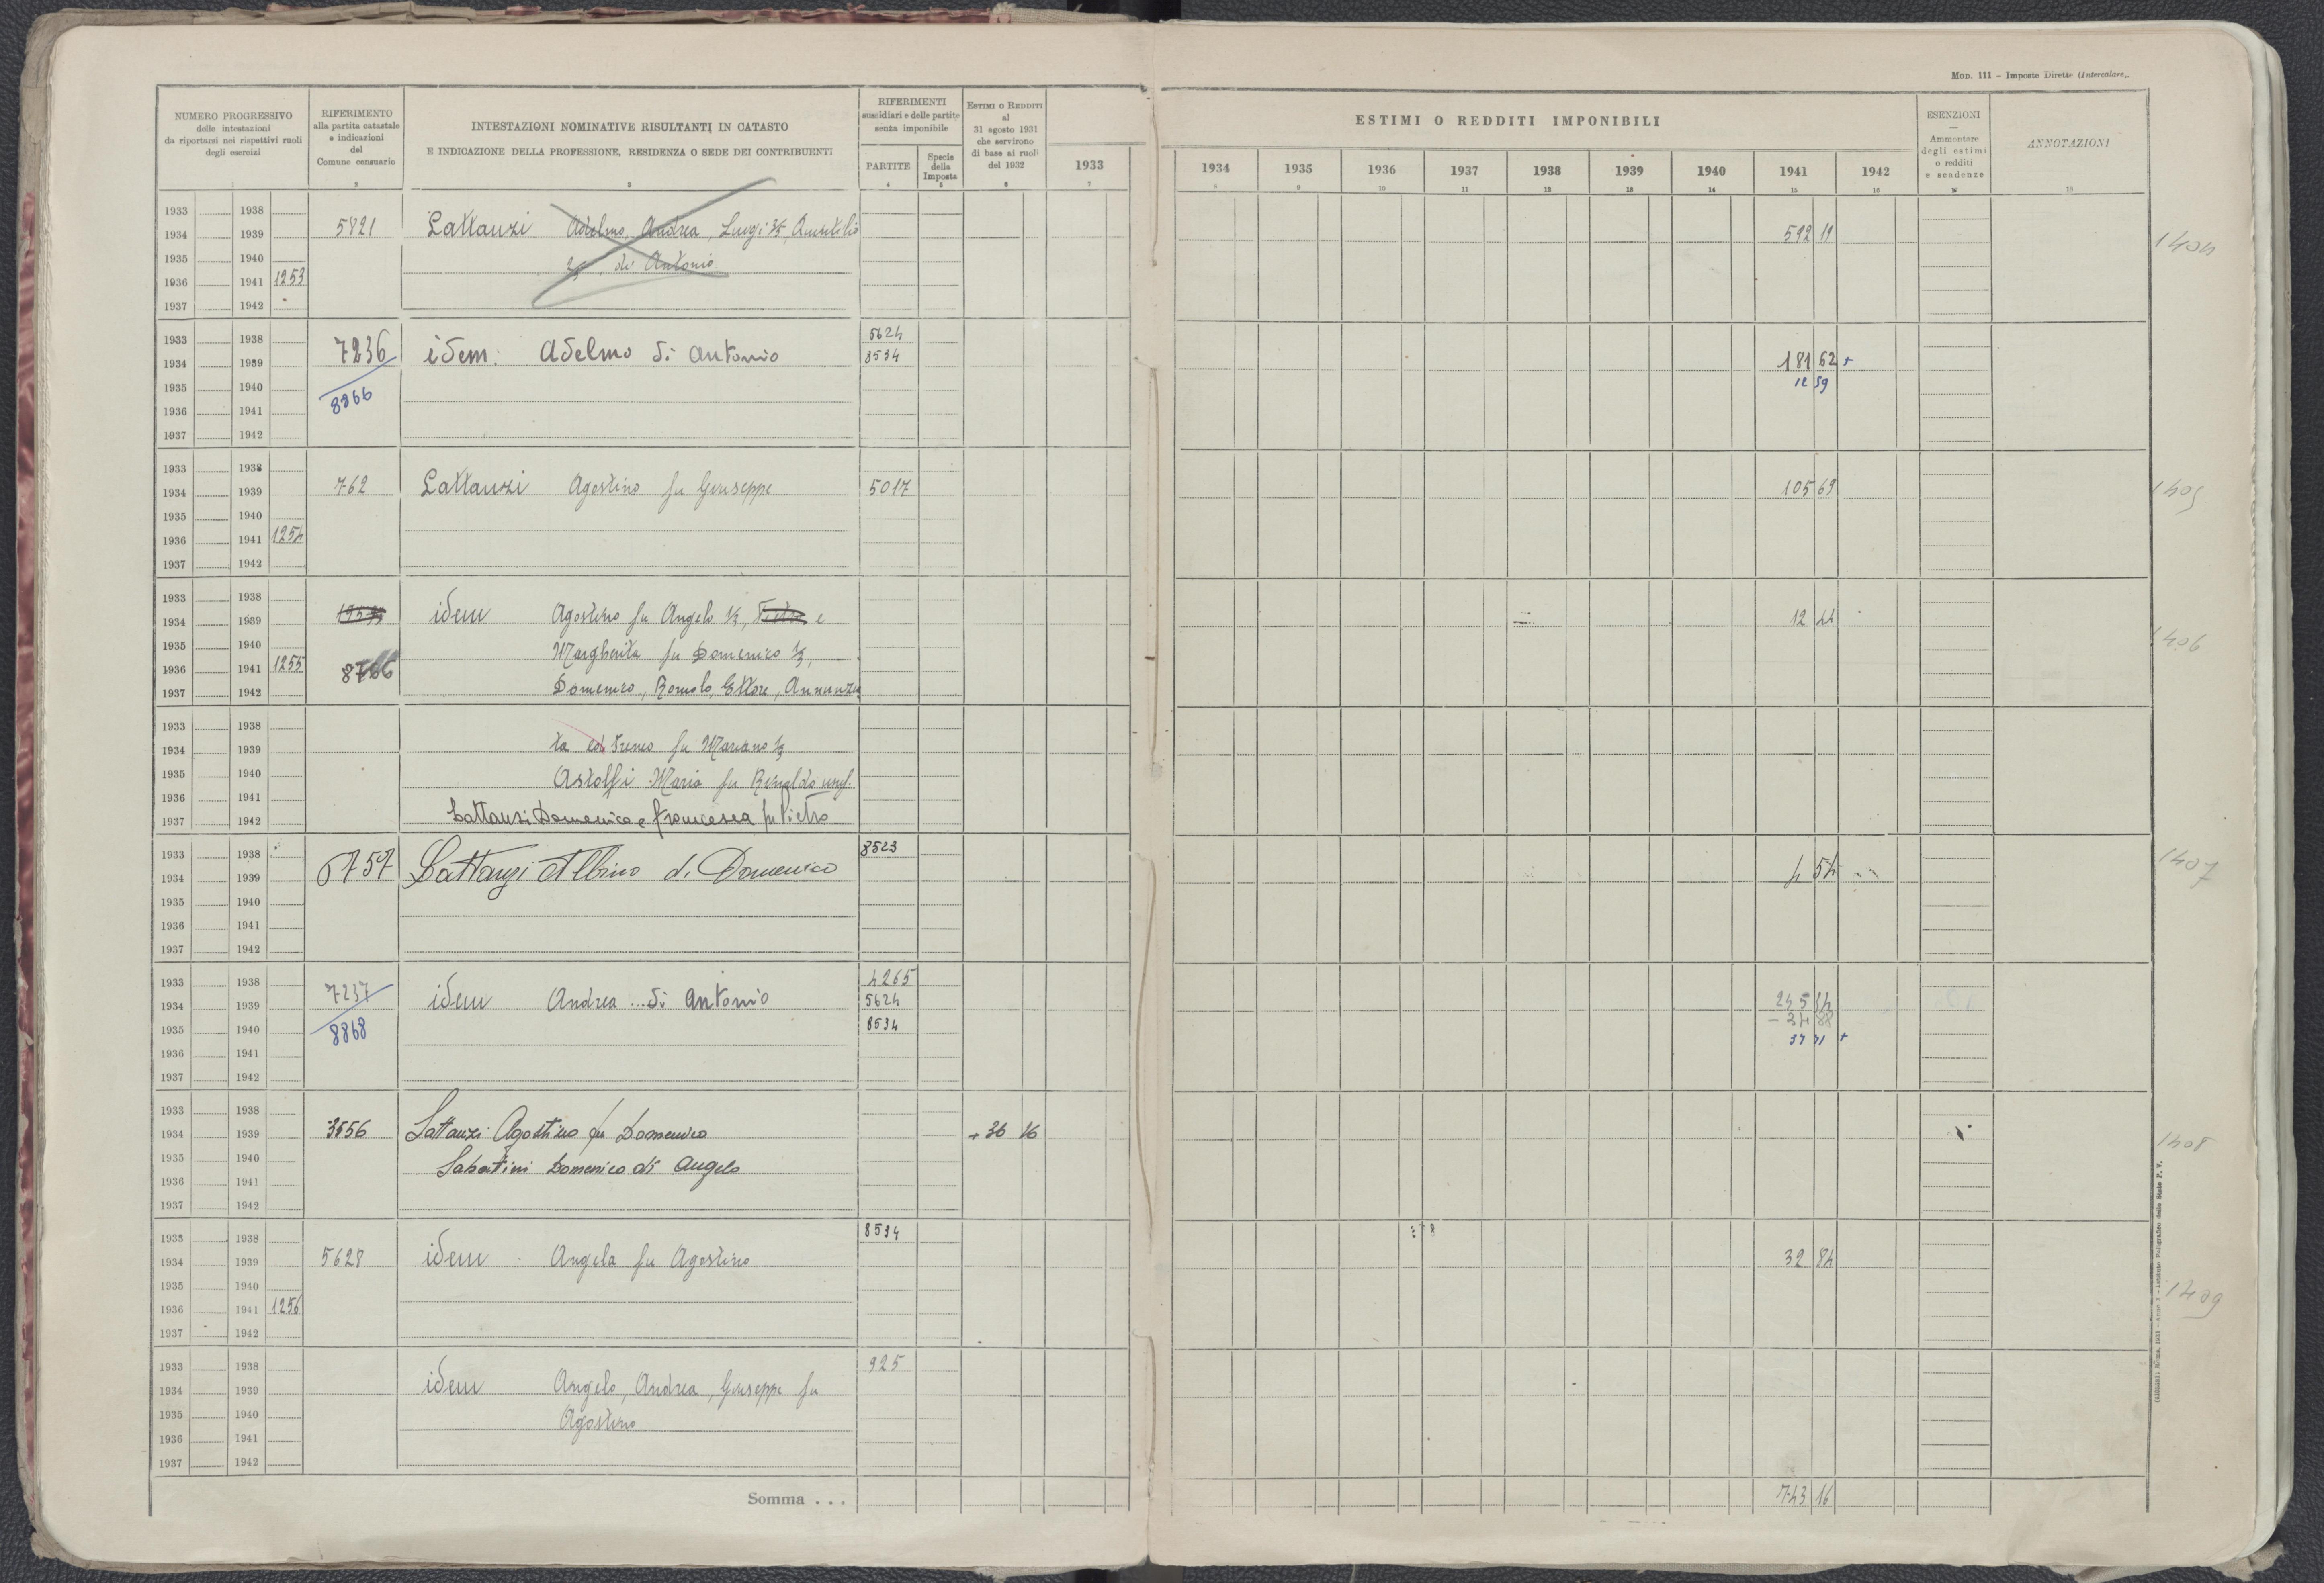 MOD. 111 – Imposte Dirette (Intercalare).
NUMERO PROGRESSIVO
delle intestazioni
da riportarsi nei rispettivi ruoli
degli esercizi
RIFERIMENTO
alla partita catastale
e indicazioni
del
Comune censuario
INTESTAZIONI NOMINATIVE RISULTANTI IN CATASTO
E INDICAZIONE DELLA PROFESSIONE, RESIDENZA O SEDE DEI CONTRIBUENTI
RIFERIMENTI
sussidiari e delle partite
senza imponibile
PARTITE
Specie
della
Imposta
ESTIMI O REDDITI
al
31 agosto 1931
che servirono
di base ai ruoli
del 1932
1933
ESTIMI O REDDITI IMPONIBILI
1934 1935 1936 1937 1938 1939 1940 1941 1942
ESENZIONI
—
Ammontare
degli estimi
o redditi
e scadenze
ANNOTAZIONI
1 2 3 4 5 6 7 8 9 10 11 12 13 14 15 16
1933 1938
1934 1939 5821 Lattanzi Adelmo, Andrea, Luigi, di Antonio 592 11 1404
1935 1940
1936 1941 1253
1937 1942
1933 1938 5624
1934 1939 7236 idem: Adelmo di Antonio 8534 181 62 +
1935 1940 8866 12 59
1936 1941
1937 1942
1933 1938
1934 1939 762 Lattanzi Agostino fu Giuseppe 5017 105 69 1405
1935 1940
1936 1941 1254
1937 1942
1933 1938
1934 1939 idem Agostino fu Angelo 1/3, e 12 44
1935 1940 Margherita fu Domenico 1/3, 1406
1936 1941 1255
1937 1942 Domenico, Romolo, Ettore, Annunzia
1933 1938
1934 1939 ta ed Ireneo fu Mariano 1/3
1935 1940 Astolfi Maria fu Rinaldo usuf.
1936 1941
1937 1942 Lattanzi Domenico e Francesca fu Pietro
1933 1938 8523
1934 1939 6757 Lattanzi Albino di Domenico 4 54 1407
1935 1940
1936 1941
1937 1942
1933 1938 4265
1934 1939 7237 idem Andrea ... di Antonio 5624 245 14
1935 1940 8868 8534 - 34 88
1936 1941 37 71 +
1937 1942
1933 1938
1934 1939 3556 Lattanzi Agostino fu Domenico + 36 16 1408
1935 1940 Sabatini Domenico di Angelo
1936 1941
1937 1942
1933 1938 8534
1934 1939 5628 idem Angela fu Agostino 32 84
1935 1940
1936 1941 1256 1409
1937 1942
1933 1938 925
1934 1939 idem Angelo, Andrea, Giuseppe fu
1935 1940 Agostino
1936 1941
1937 1942
Somma . . . 743 16